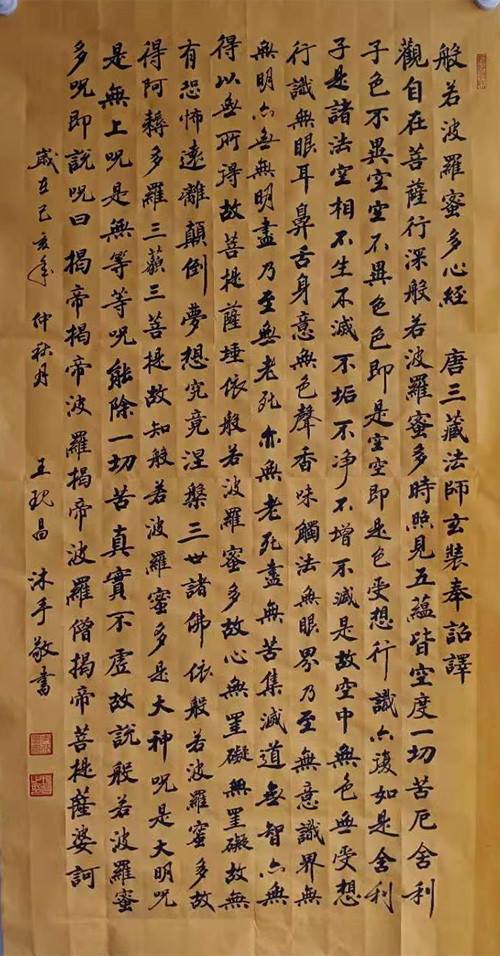 般若波羅蜜多心經 唐三藏法師玄裝奉詔譯
觀自在菩薩行深般若波羅蜜多時照見五蘊皆空度一切苦厄舍利
子色不異空空不異色色即是空空即是色受想行識亦復如是舍利
子是諸法空相不生不滅不垢不净不增不減是故空中無色無受想
行識無眼耳鼻舌身意無色聲香味觸法無眼界乃至無意識界無
無明亦無無明盡乃至無老死亦無老死盡無苦集滅道無智亦無
得以無所得故菩提薩埵依般若波羅蜜多故心無罣礙無罣礙故無
有恐怖遠離顛倒夢想究竟涅槃三世諸佛依般若波羅蜜多故
得阿耨多羅三藐三菩提故知般若波羅蜜多是大神呪是大明呪
是無上呪是無等等呪能除一切苦真實不虛故說般若波羅蜜
多呪即說呪曰 揭帝揭帝波羅揭帝波羅僧揭帝菩提薩婆訶
歲在己亥年仲秋月 王昌沐手敬書